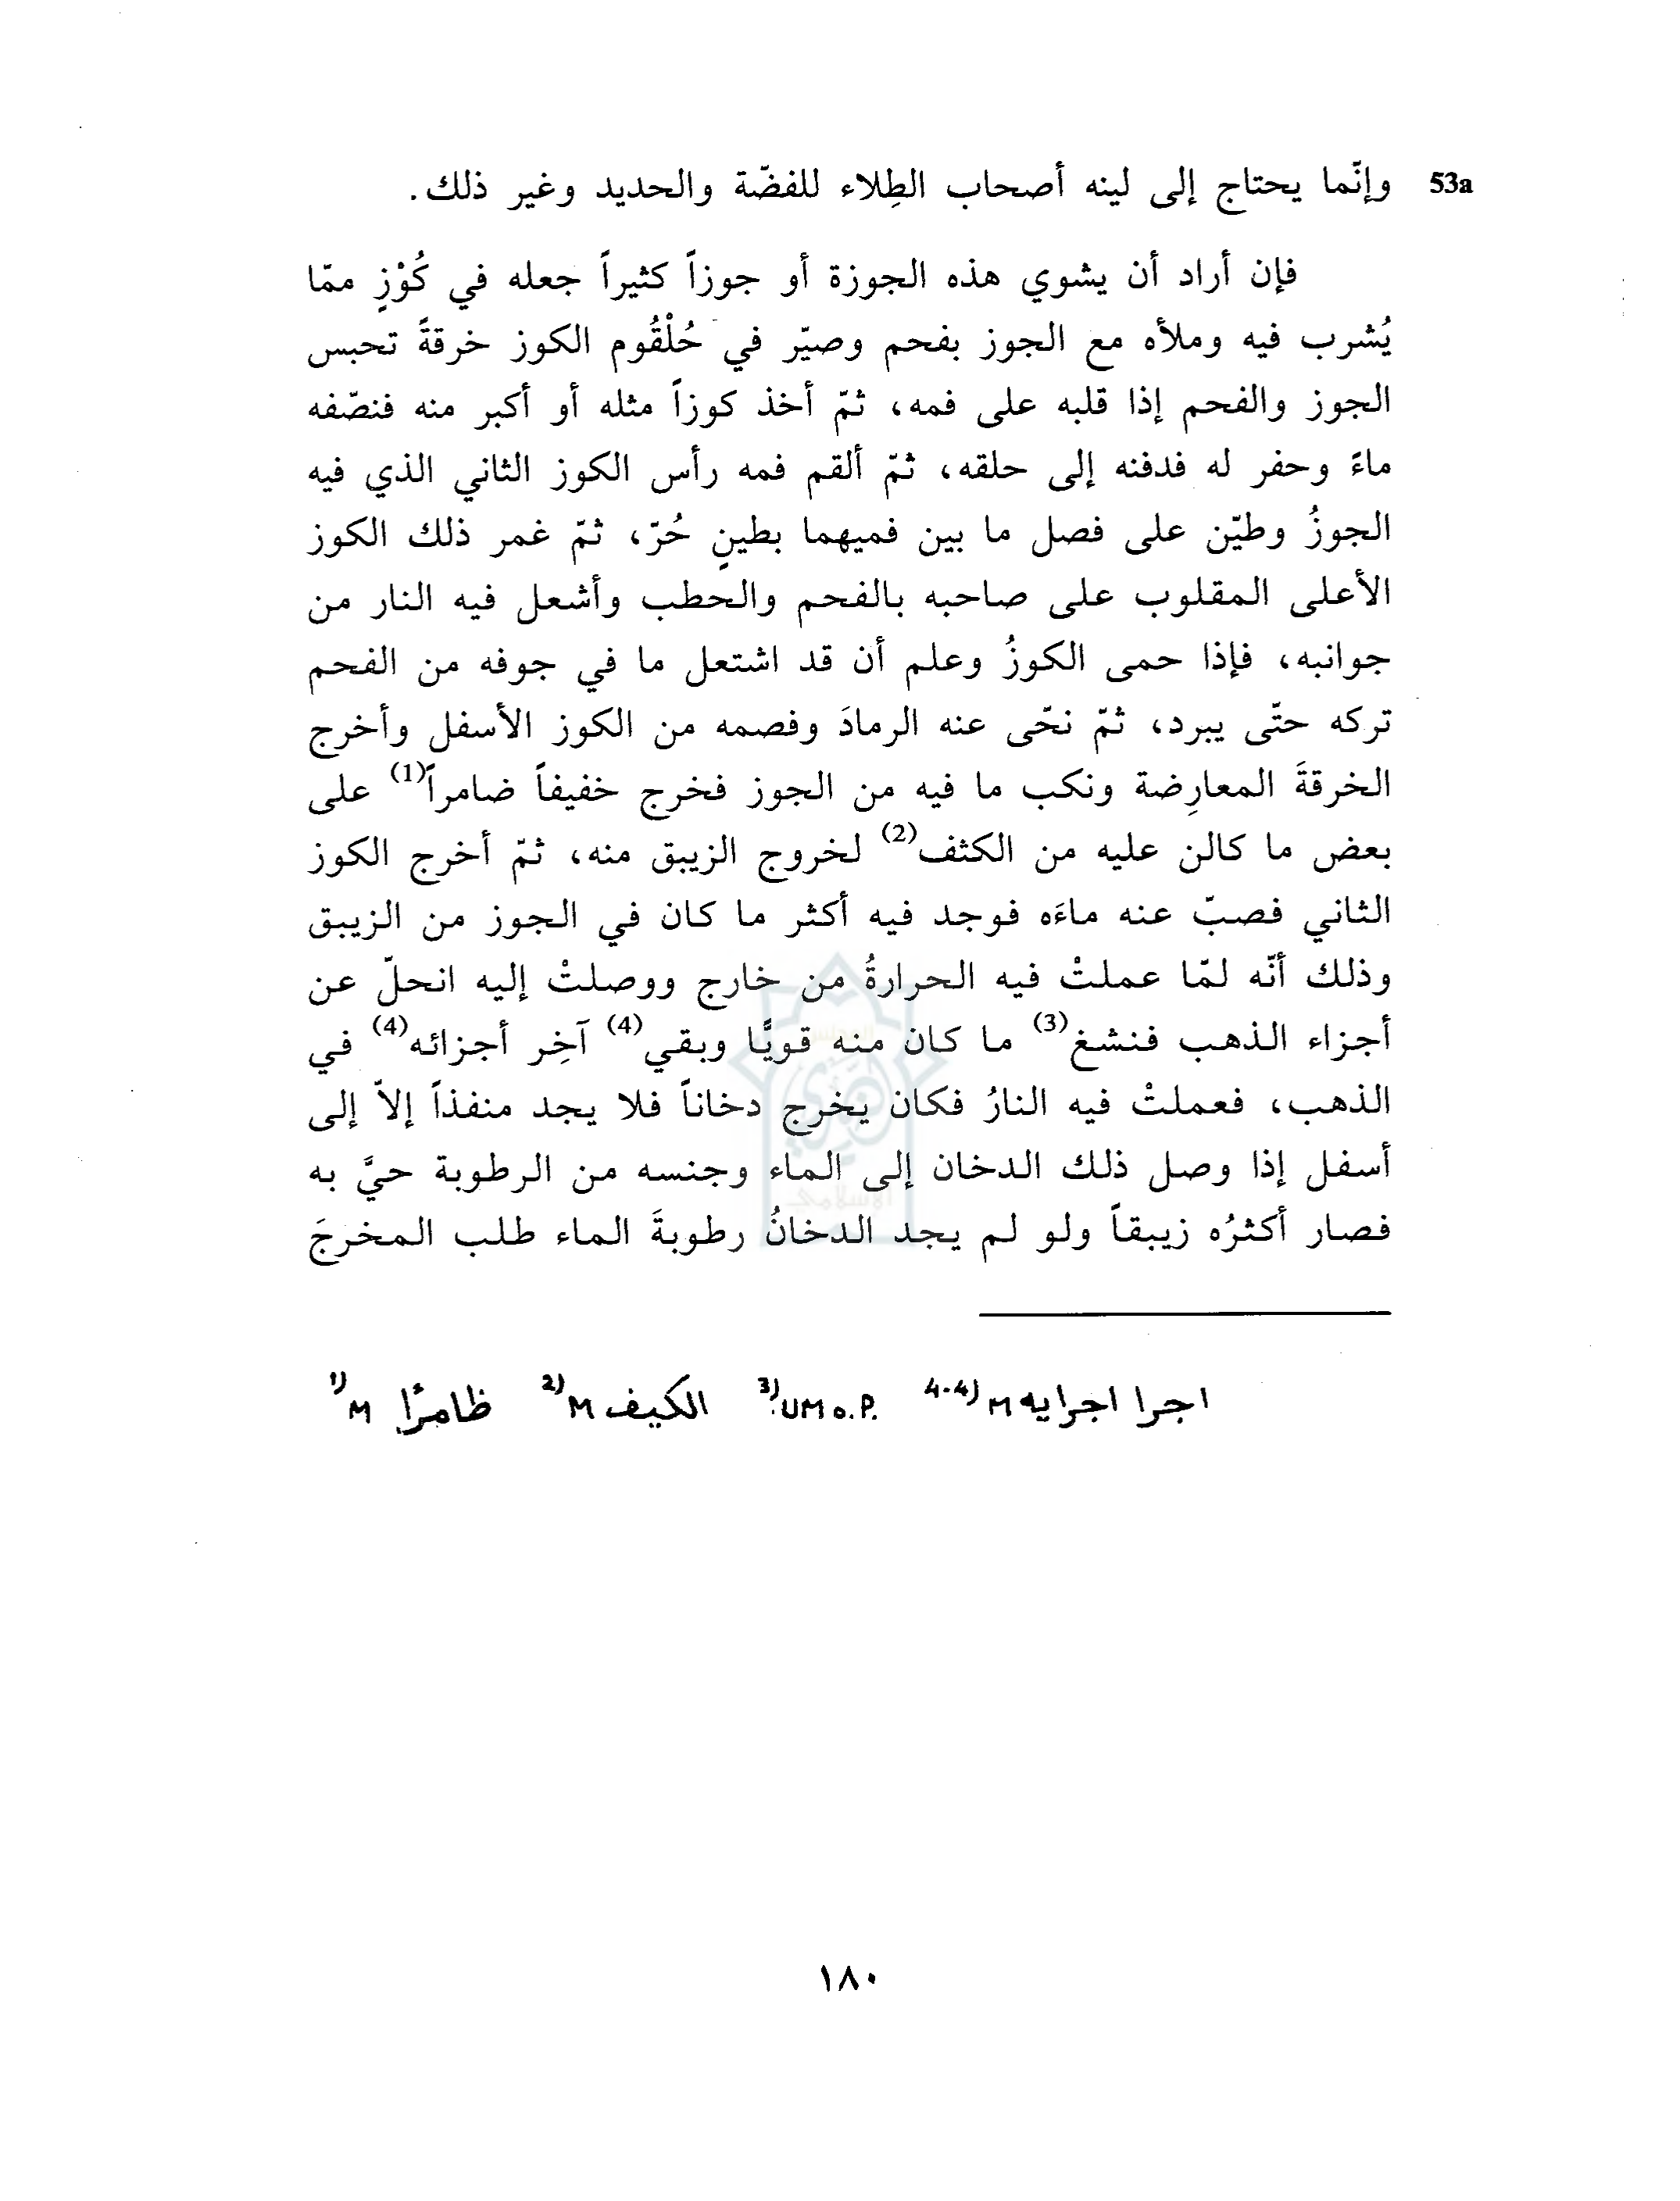 53a وإنّما يحتاج إلى لينه أصحاب الطِلاء للفضّة والحديد وغير ذلك.
فإن أراد أن يشوي هذه الجوزة أو جوزاً كثيراً جعله في كُوْزٍ ممّا
يُشرب فيه وملأه مع الجوز بفحم وصيّر في حُلْقُوم الكوز خرقةً تحبس
الجوز والفحم إذا قلبه على فمه، ثمّ أخذ كوزاً مثله أو أكبر منه فنصّفه
ماءً وحفر له فدفنه إلى حلقه، ثمّ ألقم فمه رأس الكوز الثاني الذي فيه
الجوزُ وطيّن على فصل ما بين فميهما بطينٍ حُرّ، ثمّ غمر ذلك الكوز
الأعلى المقلوب على صاحبه بالفحم والحطب وأشعل فيه النار من
جوانبه، فإذا حمى الكوزُ وعلم أن قد اشتعل ما في جوفه من الفحم
تركه حتّى يبرد، ثمّ نحّى عنه الرمادَ وفصمه من الكوز الأسفل وأخرج
الخرقةَ المعارِضة ونكب ما فيه من الجوز فخرج خفيفاً ضامراً(1) على
بعض ما كالن عليه من الكثف(2) لخروج الزيبق منه، ثمّ أخرج الكوز
الثاني فصبّ عنه ماءَه فوجد فيه أكثر ما كان في الجوز من الزيبق
وذلك أنّه لمّا عملتْ فيه الحرارةُ من خارج ووصلتْ إليه انحلّ عن
أجزاء الذهب فنشغ(3) ما كان منه قويًّا وبقي(4) آخِر أجزائه(4) في
الذهب، فعملتْ فيه النارُ فكان يخرج دخاناً فلا يجد منفذاً إلاّ إلى
أسفل إذا وصل ذلك الدخان إلى الماء وجنسه من الرطوبة حيَّ به
فصار أكثرُه زيبقاً ولو لم يجد الدخانُ رطوبةَ الماء طلب المخرجَ
1) M ظامرًا 2) M الكيف 3) UM o.P. 4-4) M اجرا اجرايه
١٨٠